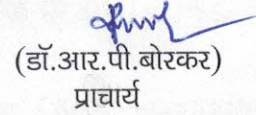 (डॉ.आर.पी.बोरकर)
प्राचार्य